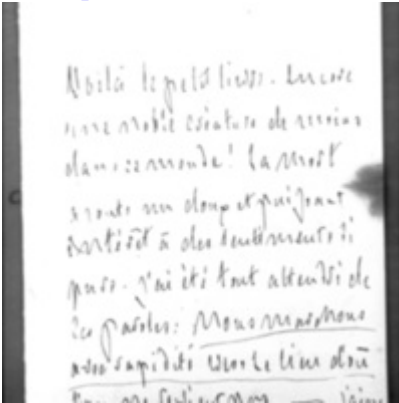 Voilà le petit livre. Encore
une noble créature de moins
dans ce monde! La mort
ajoute un doux et puissant
intérêt à des sentiments si
purs. j'ai été tout attendri de
ces paroles: Nous marchons
avec rapidité vers le lieu d'où
l'on ne revient pas